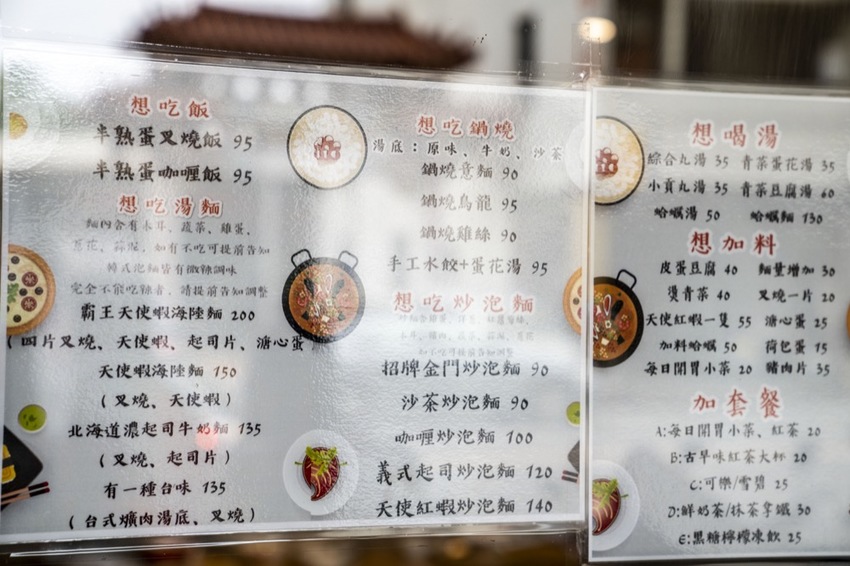 想吃飯
半熟蛋叉燒飯 95
半熟蛋咖喱飯 95
想吃湯麵
麵內含有木耳、蔬菜、雞蛋、
蔥花、蒜泥,如有不吃可提前告知
韓式泡麵皆有微辣調味
完全不能吃辣者,請提前告知調整
霸王天使蝦海陸麵 200
(四片叉燒、天使蝦、起司片、溏心蛋
天使蝦海陸麵 150
(叉燒、天使蝦)
北海道濃起司牛奶麵 135
(叉燒、起司片)
有一種台味 135
(台式爌肉湯底、叉燒)
想吃鍋燒
湯底:原味、牛奶、沙茶
鍋燒意麵 90
鍋燒烏龍 95
鍋燒雞絲 90
手工水餃+蛋花湯 95
想吃炒泡麵
如不吃可提前告知調整
招牌金門炒泡麵 90
沙茶炒泡麵 90
咖喱炒泡麵 100
義式起司炒泡麵 120
天使紅蝦炒泡麵 140
想喝湯
綜合丸湯 35 青菜蛋花湯 35
小貢丸湯 35 青菜豆腐湯 60
蛤蠣湯 50 蛤蠣麵 130
想加料
皮蛋豆腐 40 麵量增加 30
燙青菜 40 叉燒一片 20
天使紅蝦一隻 55 溏心蛋 25
加料蛤蠣 50 荷包蛋 15
每日開胃小菜 20 豬肉片 35
加套餐
A:每日開胃小菜、紅茶 20
B:古早味紅茶大杯 20
C:可樂/雪碧 25
D:鮮奶茶/抹茶拿鐵 30
E:黑糖檸檬凍飲 25